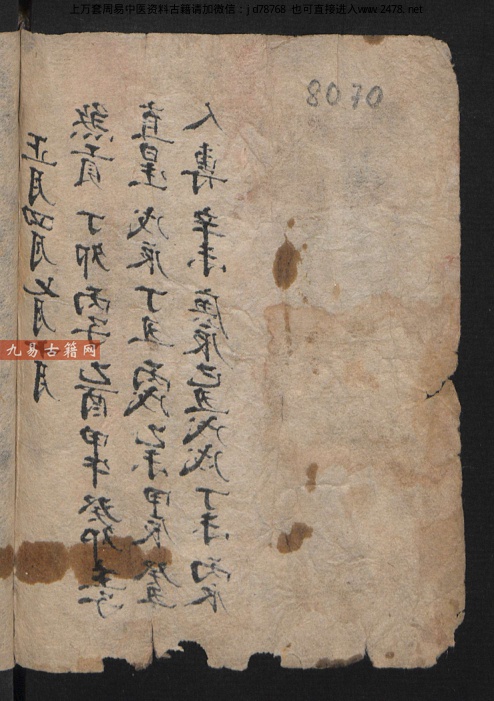 上万套周易中医资料古籍请加微信：j d78768 也可直接进入www.2478. net
8070
正月四月七月 月
煞貢 丁卯 丙子 乙酉 甲午 癸卯 壬子
直星 戊辰 丁丑 丙戌 乙未 甲辰 癸丑
人專 辛未 庚辰 己丑 戊戌 丁未 丙辰
九易古籍网